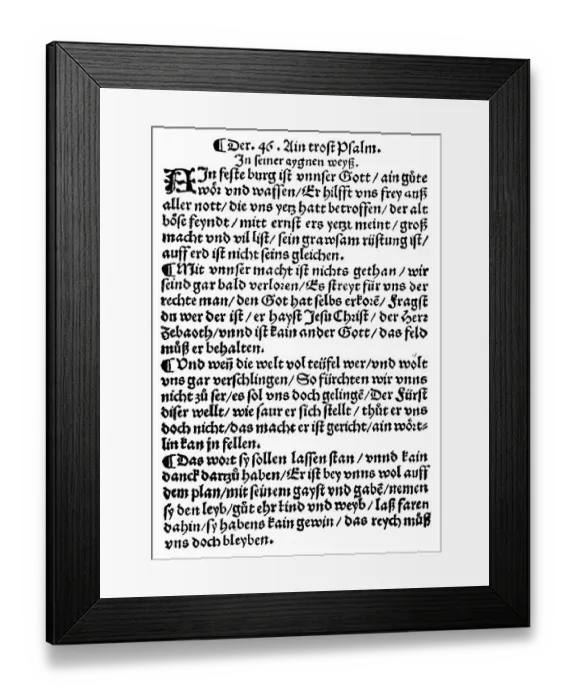 ¶ Der. 46. Ain trost Psalm.
In seiner aygnen weyß.
AIn feste burg ist vnnser Gott / ain gůte
wör vnd waffen / Er hilfft vns frey auß
aller nott / die vns yetz hatt betroffen / der alt
böse feyndt / mitt ernst ers yetzt meint / groß
macht vnd vil list / sein grawsam rüstung ist /
auff erd ist nicht seins gleichen.
¶ Mit vnnser macht ist nichts gethan / wir
seind gar bald verloren / Es streyt für vns der
rechte man / den Got hat selbs erkorē / Fragst
du wer der ist / er hayst Jesu Christ / der Herr
Zebaoth / vnnd ist kain ander Gott / das feld
můß er behalten.
¶ Vnd weñ die welt vol teüfel wer / vnd wolt
vns gar verschlingen / So fürchten wir vnns
nicht zů ser / es sol vns doch gelingē / Der Fürst
diser wellt / wie saur er sich stellt / thůt er vns
doch nicht / das macht er ist gericht / ain wört-
lin kan jn fellen.
¶ Das wort sy sollen lassen stan / vnnd kain
danck darzů haben / Er ist bey vnns wol auff
dem plan / mit seinem gayst vnd gabē / nemen
sy den leyb / gůt ehr kind vnd weyb / laß faren
dahin / sy habens kain gewin / das reych můß
vns doch bleyben.